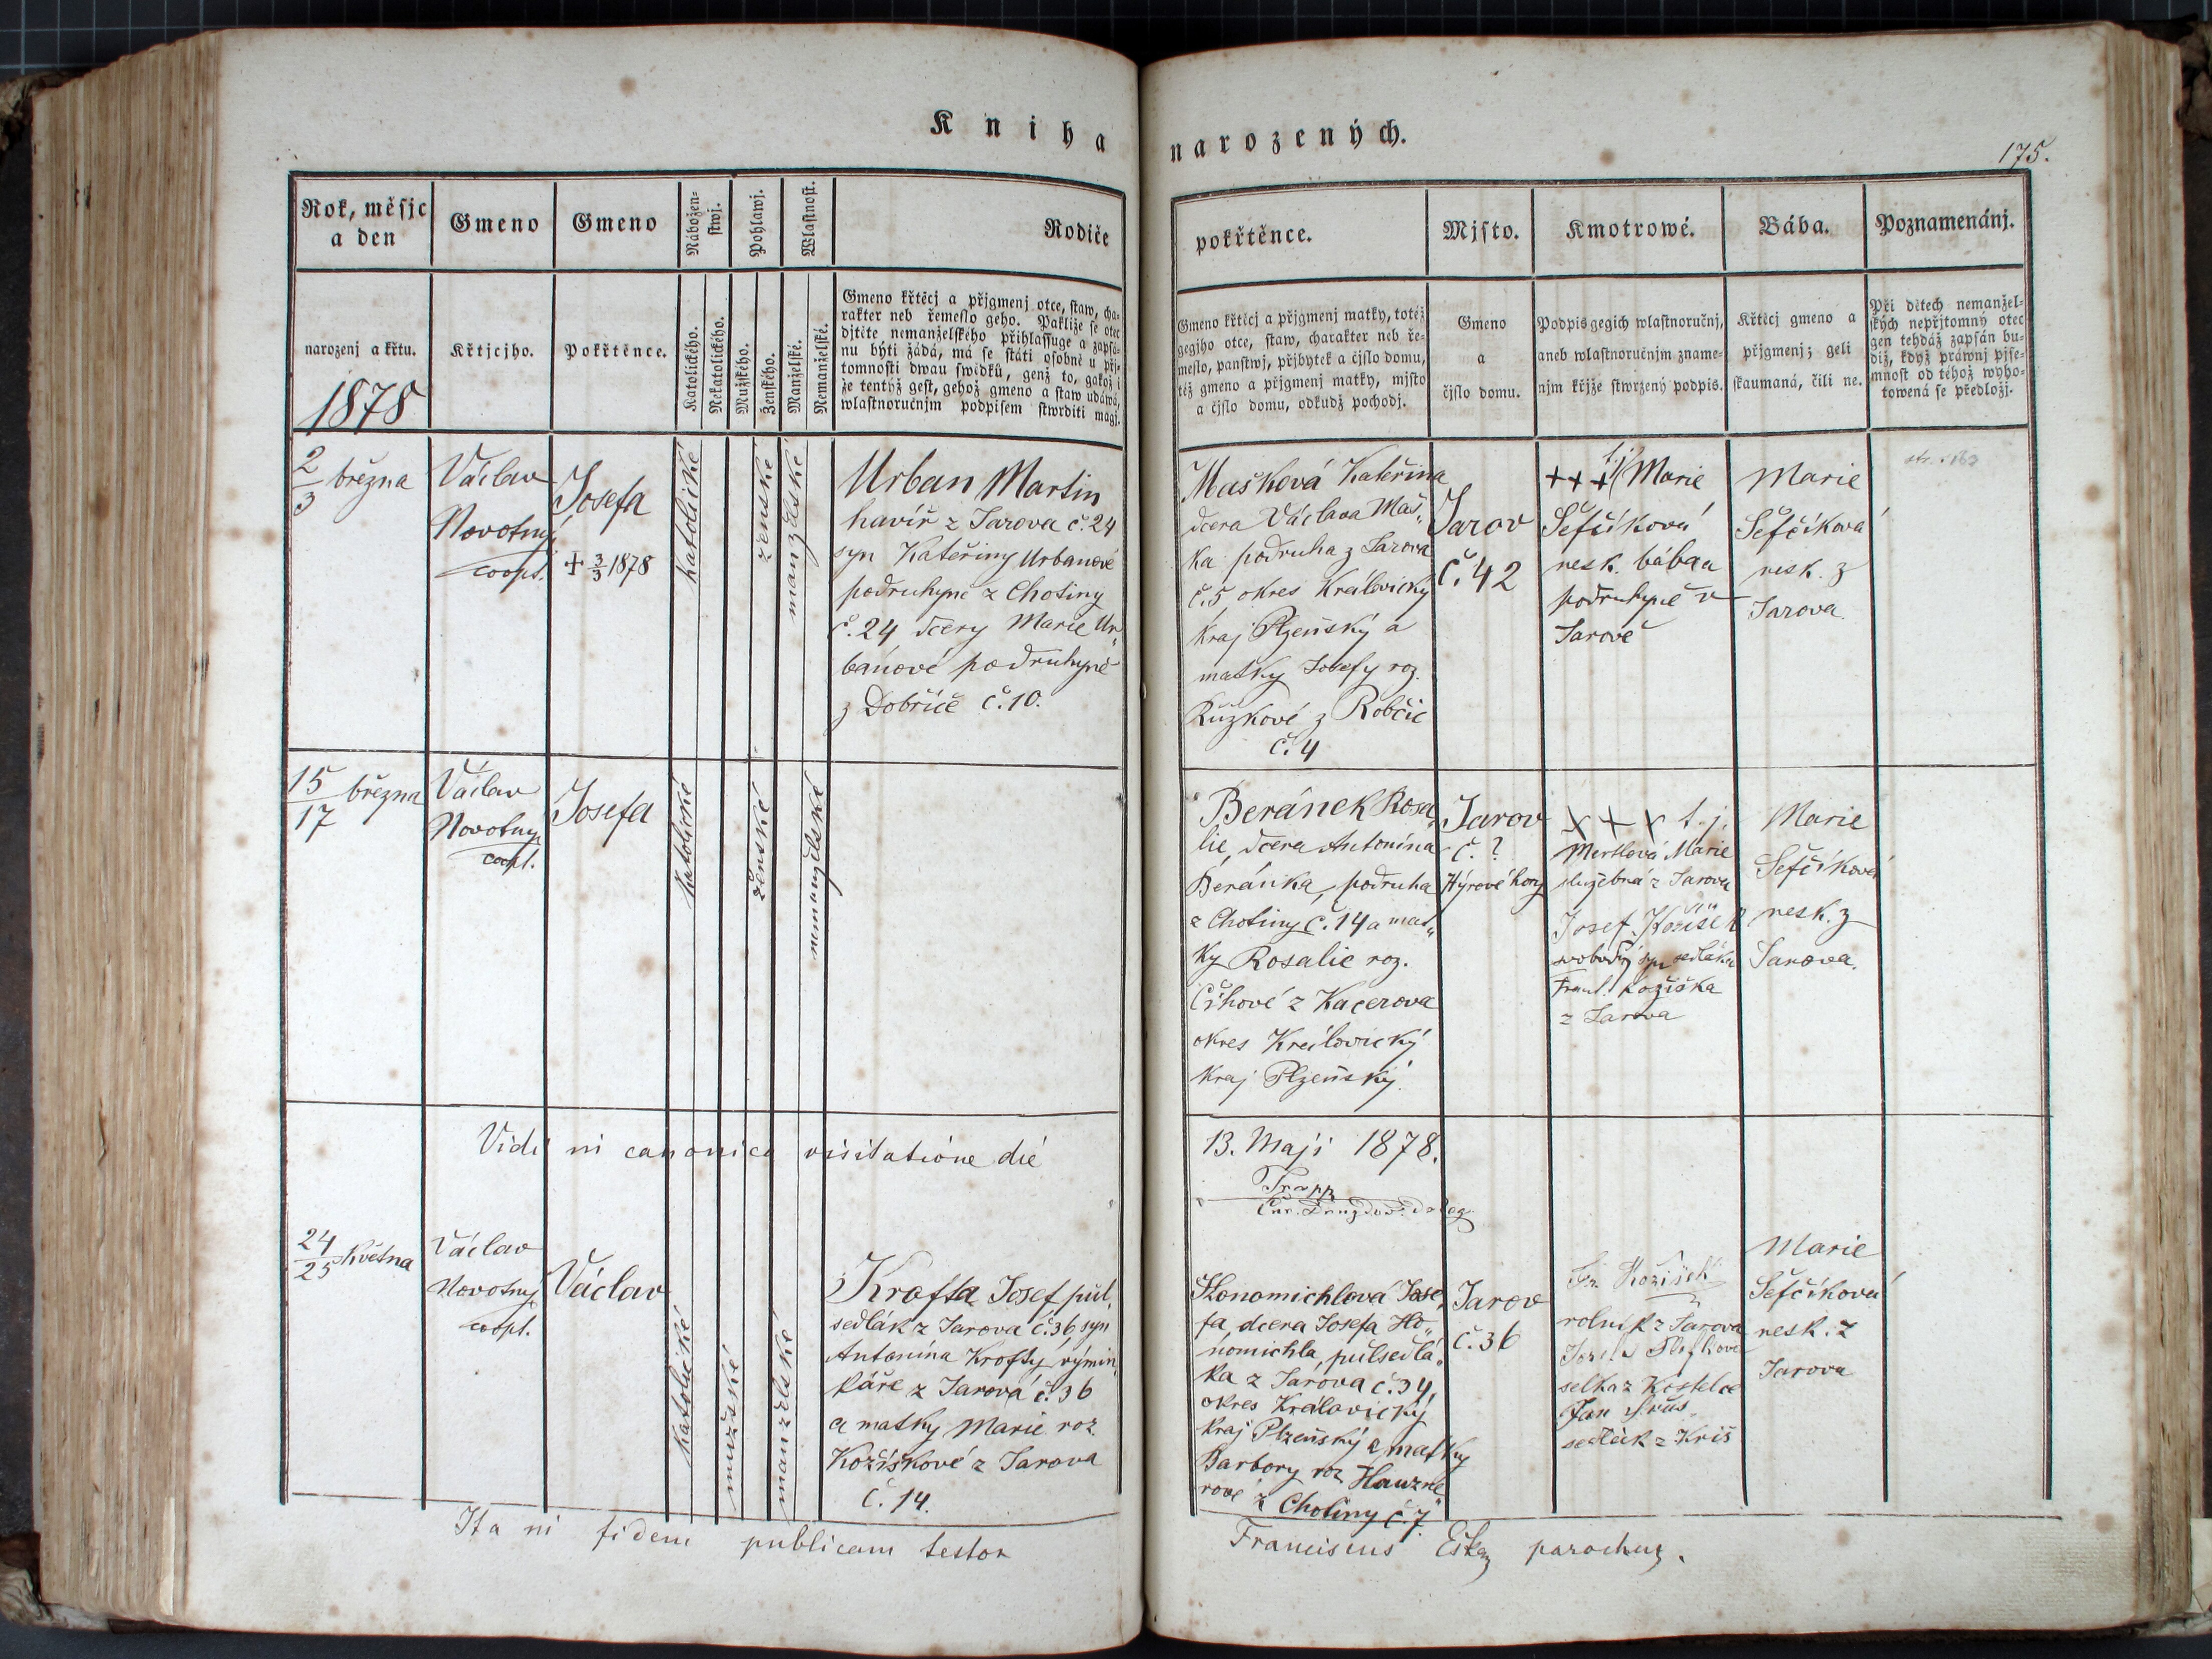 Kniha narozených.
175.
Rok, měsjc
a den
Gmeno
Gmeno
Nábožen-
stwj.
Pohlawj.
Wlastnost.
Rodiče
pokřtěnce.
Mjsto.
Kmotrowé.
Bába.
Poznamenánj.
narozenj a křtu.
1878
Křtjcjho.
Pokřtěnce.
Katolického.
Nekatolického.
Mužského.
Ženského.
Manželské.
Nemanželské.
Gmeno křtěcj a přjgmenj otce, staw, cha-
rakter neb řemeslo geho. Pakliže se otec
djtěte nemanželského přihlassuge a zapsá-
nu býti žádá, má se státi osobně u přj-
tomnosti dwau swědků, genž to, gakož i
že tentýž gest, gehož gmeno a staw udáwá,
wlastnoručnjm podpisem stwrditi magj.
Gmeno křtěcj a přjgmenj matky, totéž
gegjho otce, staw, charakter neb ře-
meslo, panstwj, přjbytek a čjslo domu,
též gmeno a přjgmenj matky, mjsto
a čjslo domu, odkudž pochodj.
Gmeno
a
čjslo domu.
Podpis gegich wlastnoručnj,
aneb wlastnoručnjm zname-
njm křjže stwrzený podpis.
Křtěcj gmeno a
přjgmenj; geli
skaumaná, čili ne.
Při dětech nemanžel-
ských nepřjtomný otec
gen tehdáž zapsán bu-
diž, když práwnj pjse-
mnost od téhož wyho-
towená se předložj.
2/3 března
Václav
Novotný
coopt.
Josefa
+ 3/3 1878
katolické
ženské
manželské
Urban Martin
havíř z Jarova č. 24
syn Kateřiny Urbanové
podruhyně z Chotiny
č. 24 dcery Marie Ur„
banové podruhyně
z Dobříče č. 10.
Mašková Kateřina
dcera Václava Maš„
ka podruha z Jarova
č. 5 okres Královický
kraj Plzeňský a
matky Josefy roz.
Růžkové z Robčic
č. 4
Jarov
č. 42
+++ t.j. Marie
Šefčíková
nesk. bába a
podruhyně v
Jarově
Marie
Šefčíková
nesk. z
Jarova.
str. 163
15/17 března
Václav
Novotný
coopt.
Josefa
katolické
ženské
nemanželské
Beránek Rosa„
lie, dcera Antonína
Beránka, podruha
z Chotiny č. 14 a mat„
ky Rosalie roz.
Číhové z Kacerova
okres Královický
kraj Plzeňský.
Jarov
č. ?
Hýrové hory
+ + + t. j.
Mertlová Marie
služebná z Jarova
Josef Kožíšek
svobodný syn sedláka
Frant. Kožíška
z Jarova
Marie
Šefčíková
nesk. z
Jarova.
Vidi in canonica visitatione die
13. Maji 1878.
Trapp
24/25 Května
Václav
Novotný
coopt.
Václav
katolické
mužské
manželské
Krofta Josef, půl„
sedlák z Jarova č. 36, syn
Antonína Krofty, výmin„
káře z Jarova č. 36
a matky Marie roz.
Kožíškové z Jarova
č. 14.
Honomichlová Jose„
fa, dcera Josefa Ho„
nomichla, půlsedlá„
ka z Jarova č. 34,
okres Královický
kraj Plzeňský a matky
Barbory roz. Hauzne„
rové z Chotiny č. 7.
Jarov
č. 36
Fr. Kožíšek
rolník z Jarova
selka z Kostelce
Jan
sedlák z Kříš
Marie
Šefčíková
nesk. z
Jarova
Ita in fidem publicam testor
Franciscus parochus.